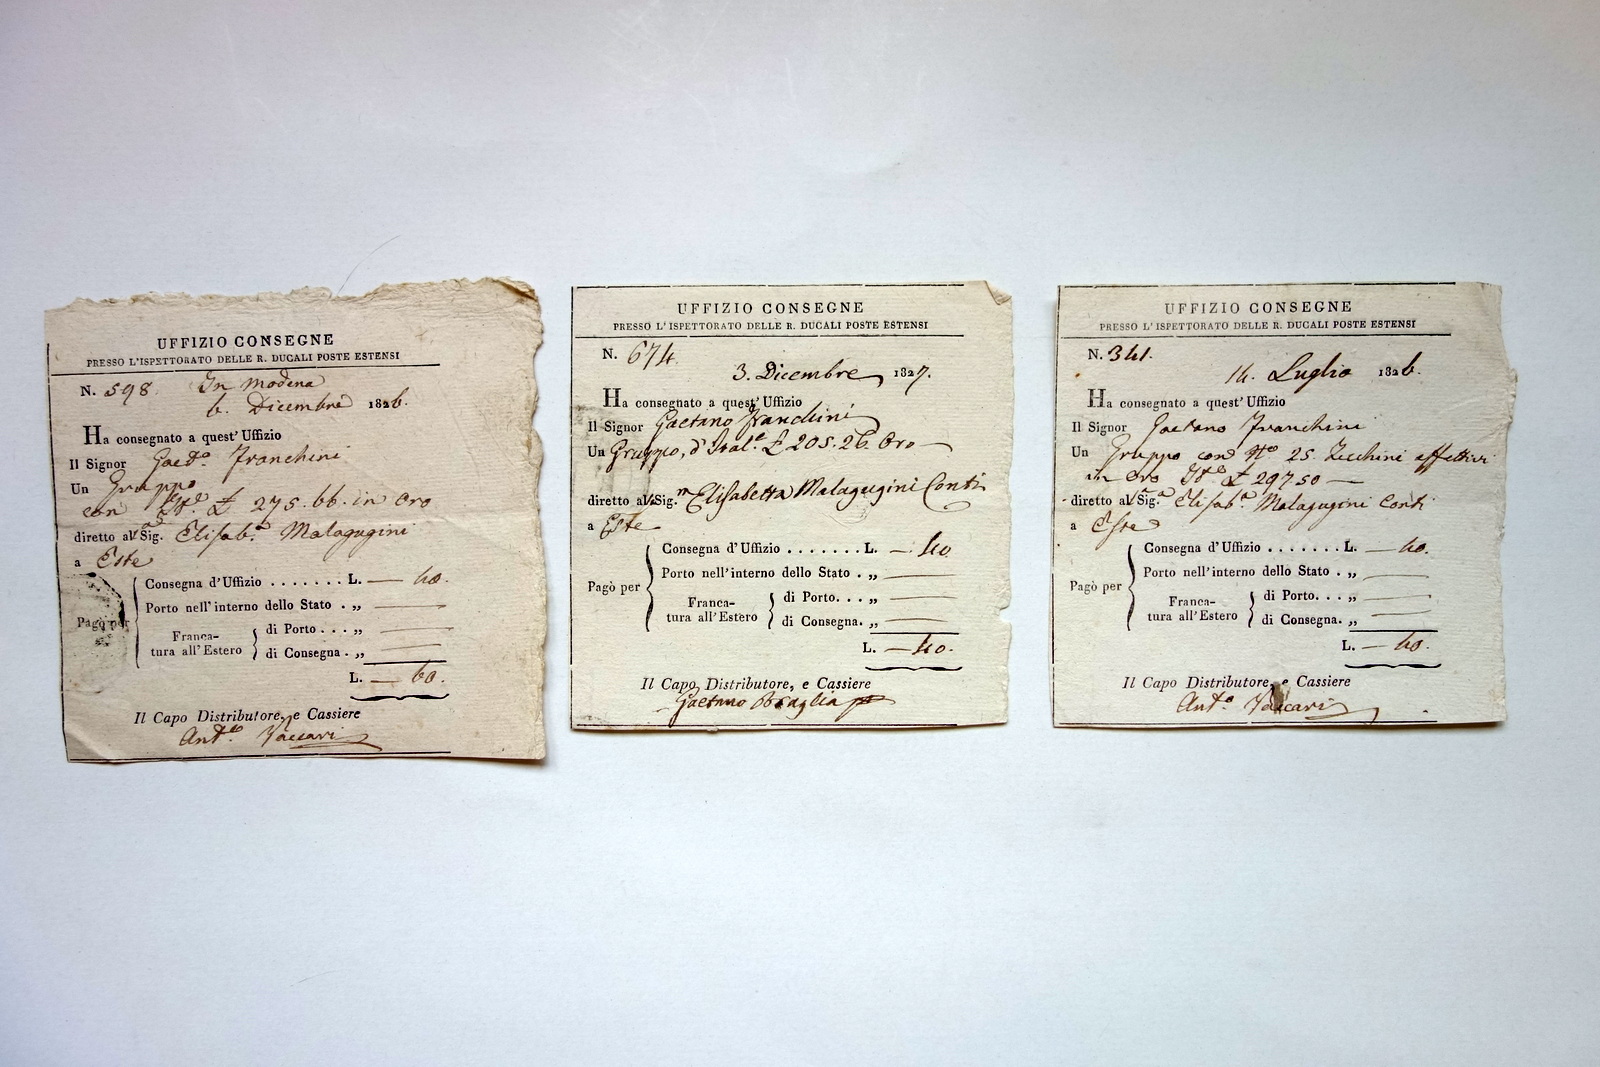 UFFIZIO CONSEGNE
PRESSO L'ISPETTORATO DELLE R. DUCALI POSTE ESTENSI
N. 598. In Modena
6. Dicembre 1826.
Ha consegnato a quest' Uffizio
Il Signor Gaet.o Franchini
Un Gruppo
con It.e £ 275.66. in oro
diretto alla Sig.a Elisab.a Malagugini
a Este
Consegna d'Uffizio ....... L. — 40.
Porto nell'interno dello Stato . „ —
Pagò per
Franca-
tura all'Estero
di Porto ... „ —
di Consegna . „ —
L. — 60.
Il Capo Distributore, e Cassiere
Ant.o Vaccari
UFFIZIO CONSEGNE
PRESSO L'ISPETTORATO DELLE R. DUCALI POSTE ESTENSI
N. 674.
3. Dicembre 1827.
Ha consegnato a quest' Uffizio
Il Signor Gaetano Franchini
Un Gruppo, d'Ital.e £ 205.26. Oro —
diretto al Sig.ra Elisabetta Malagugini Conti
a Este
Consegna d'Uffizio ....... L. — 40
Porto nell'interno dello Stato . „ —
Pagò per
Franca-
tura all'Estero
di Porto... „ —
di Consegna. „ —
L. — 40.
Il Capo Distributore, e Cassiere
Gaetano Braglia
UFFIZIO CONSEGNE
PRESSO L'ISPETTORATO DELLE R. DUCALI POSTE ESTENSI
N. 341.
14. Luglio 1826.
Ha consegnato a quest' Uffizio
Il Signor Gaetano Franchini
Un Gruppo con N.o 25. Zecchini effettivi
in oro It.e £ 297.50 —
diretto alla Sig.a Elisab.a Malagugini Conti
a Este
Consegna d'Uffizio ....... L. — 40.
Porto nell'interno dello Stato . „ —
Pagò per
Franca-
tura all'Estero
di Porto... „ —
di Consegna. „ —
L. — 40.
Il Capo Distributore, e Cassiere
Ant.o Vaccari